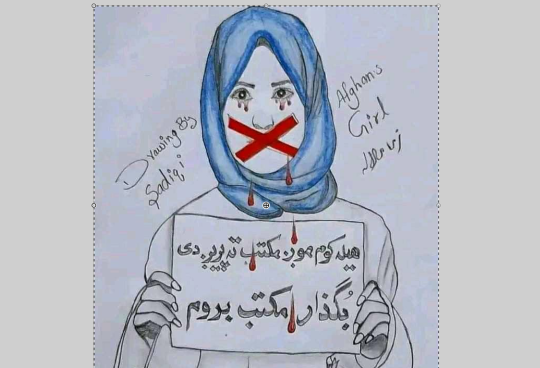 Drawing By
Sadiqi
Afghans
Girl
هیله کوم موږ مکتب ته پریږدی
بُگذار مکتب بروم